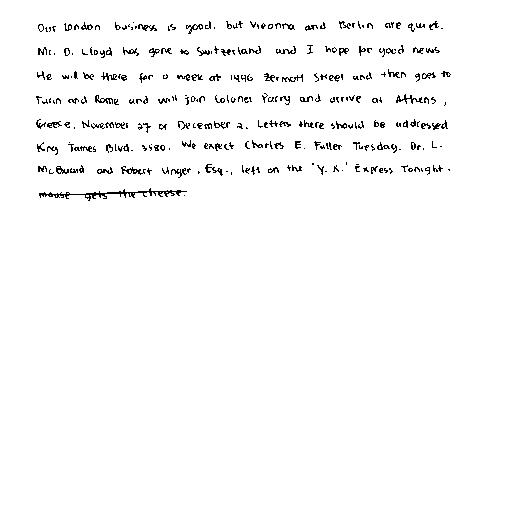 Our london business is good, but Vieanna and Berlin are quiet.
Mr. D. Lloyd has gone to Switzerland and I hope for good news
He will be there for a week at 1496 Zermott Street and then goes to
Turin and Rome and will join Colonel Parry and arrive at Athens,
Greece, November 27 or December 2. Letters there should be addressed
King James Blvd. 3580. We expect Charles E. Fuller Tuesday. Dr. L.
McQuaid and Robert Unger, Esq., left on the "Y. X." Express Tonight.
mouse gets the cheese.